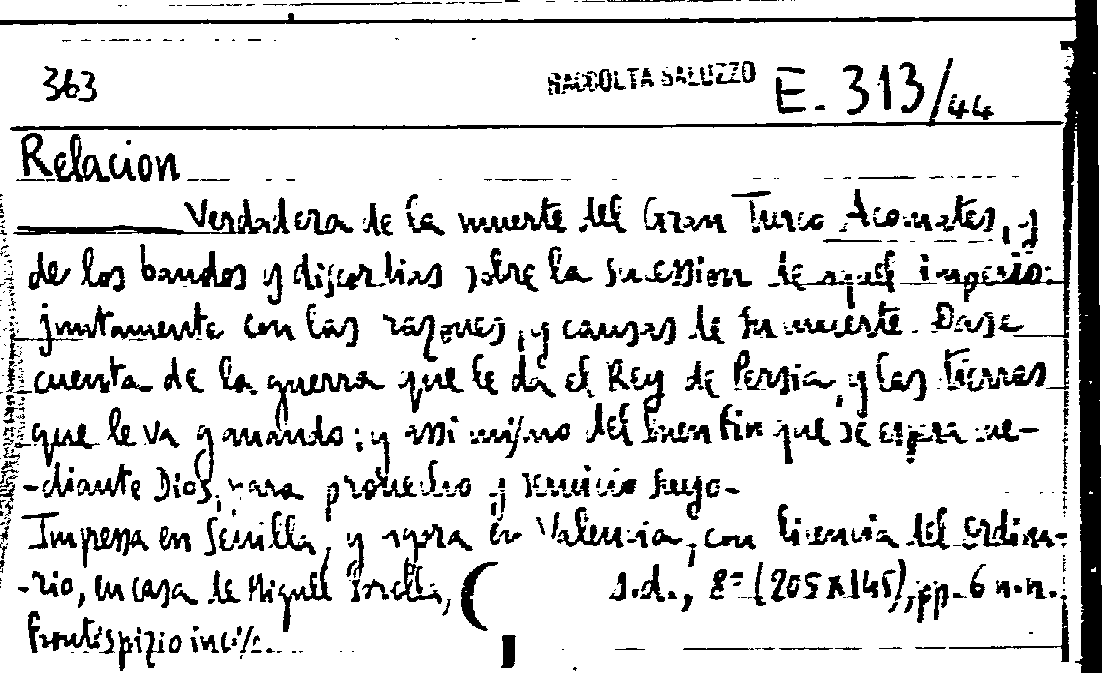 363 RACCOLTA SALUZZO E. 313/44
Relacion
Verdadera de la muerte del Gran Turco Acomates, y
de los bandos y discordias sobre la sucession de aquel imperio:
juntamente con las razones, y causas de su muerte. Dase
cuenta de la guerra que le da el Rey de Persia, y las tierras
que le va ganando; y assi mismo del buen fin que se espera me-
-diante Dios, para prouecho y seruicio suyo.
Impressa en Seuilla, y agora en Valencia, con licencia del Ordina-
-rio, en casa de Miguel Sorolla, ( s.d., 8º (205x145), pp. 6 n.n.
frontispizio inciso.